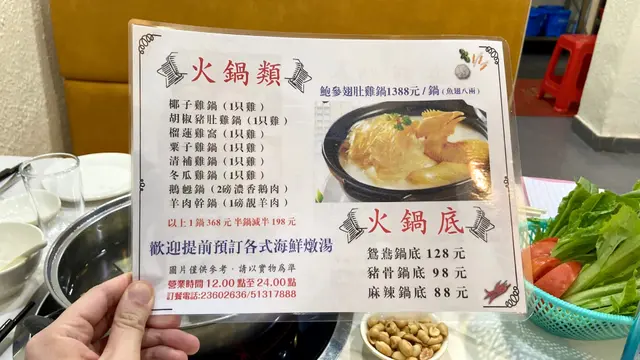 火鍋類
椰子雞鍋（1只雞）
胡椒豬肚雞鍋（1只雞）
榴蓮雞窩（1只雞）
栗子雞鍋（1只雞）
清補雞鍋（1只雞）
冬瓜雞鍋（1只雞）
鵝𩠌鍋（2磅濃香鵝肉）
羊肉幹鍋（1磅靚羊肉）
以上1鍋368元 半鍋減半198元
歡迎提前預訂各式海鮮燉湯
圖片僅供參考，請以實物為準
營業時間 12.00點至24.00點
訂餐電話:23602636/51317888
鮑參翅肚雞鍋1388元/鍋（魚翅八兩）
火鍋底
鴛鴦鍋底 128元
豬骨鍋底 98元
麻辣鍋底 88元